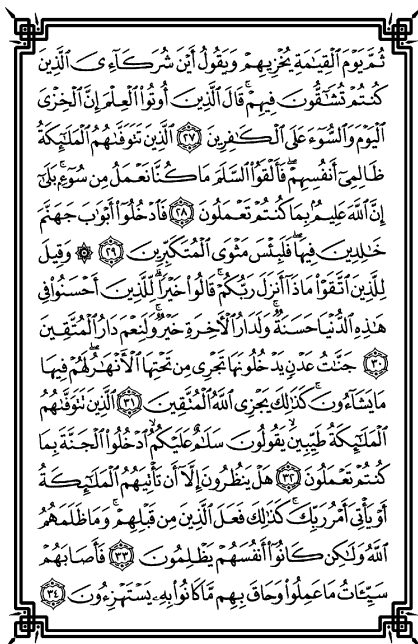 ثُمَّ يَوْمَ ٱلْقِيَٰمَةِ يُخْزِيهِمْ وَيَقُولُ أَيْنَ شُرَكَآءِىَ ٱلَّذِينَ
كُنتُمْ تُشَٰٓقُّونَ فِيهِمْ ۚ قَالَ ٱلَّذِينَ أُوتُوا۟ ٱلْعِلْمَ إِنَّ ٱلْخِزْىَ
ٱلْيَوْمَ وَٱلسُّوٓءَ عَلَى ٱلْكَٰفِرِينَ ﴿٢٧﴾ ٱلَّذِينَ تَتَوَفَّىٰهُمُ ٱلْمَلَٰٓئِكَةُ
ظَالِمِىٓ أَنفُسِهِمْ ۖ فَأَلْقَوُا۟ ٱلسَّلَمَ مَا كُنَّا نَعْمَلُ مِن سُوٓءٍۭ ۚ بَلَىٰٓ
إِنَّ ٱللَّهَ عَلِيمٌۢ بِمَا كُنتُمْ تَعْمَلُونَ ﴿٢٨﴾ فَٱدْخُلُوٓا۟ أَبْوَٰبَ جَهَنَّمَ
خَٰلِدِينَ فِيهَا ۖ فَلَبِئْسَ مَثْوَى ٱلْمُتَكَبِّرِينَ ﴿٢٩﴾ ۞ وَقِيلَ
لِلَّذِينَ ٱتَّقَوْا۟ مَاذَآ أَنزَلَ رَبُّكُمْ ۚ قَالُوا۟ خَيْرًا ۗ لِّلَّذِينَ أَحْسَنُوا۟ فِى
هَٰذِهِ ٱلدُّنْيَا حَسَنَةٌ ۚ وَلَدَارُ ٱلْءَاخِرَةِ خَيْرٌ ۚ وَلَنِعْمَ دَارُ ٱلْمُتَّقِينَ
﴿٣٠﴾ جَنَّٰتُ عَدْنٍ يَدْخُلُونَهَا تَجْرِى مِن تَحْتِهَا ٱلْأَنْهَٰرُ ۖ لَهُمْ فِيهَا
مَا يَشَآءُونَ ۚ كَذَٰلِكَ يَجْزِى ٱللَّهُ ٱلْمُتَّقِينَ ﴿٣١﴾ ٱلَّذِينَ تَتَوَفَّىٰهُمُ
ٱلْمَلَٰٓئِكَةُ طَيِّبِينَ ۙ يَقُولُونَ سَلَٰمٌ عَلَيْكُمُ ٱدْخُلُوا۟ ٱلْجَنَّةَ بِمَا
كُنتُمْ تَعْمَلُونَ ﴿٣٢﴾ هَلْ يَنظُرُونَ إِلَّآ أَن تَأْتِيَهُمُ ٱلْمَلَٰٓئِكَةُ
أَوْ يَأْتِىَ أَمْرُ رَبِّكَ ۚ كَذَٰلِكَ فَعَلَ ٱلَّذِينَ مِن قَبْلِهِمْ ۚ وَمَا ظَلَمَهُمُ
ٱللَّهُ وَلَٰكِن كَانُوٓا۟ أَنفُسَهُمْ يَظْلِمُونَ ﴿٣٣﴾ فَأَصَابَهُمْ
سَيِّـَٔاتُ مَا عَمِلُوا۟ وَحَاقَ بِهِم مَّا كَانُوا۟ بِهِۦ يَسْتَهْزِءُونَ ﴿٣٤﴾